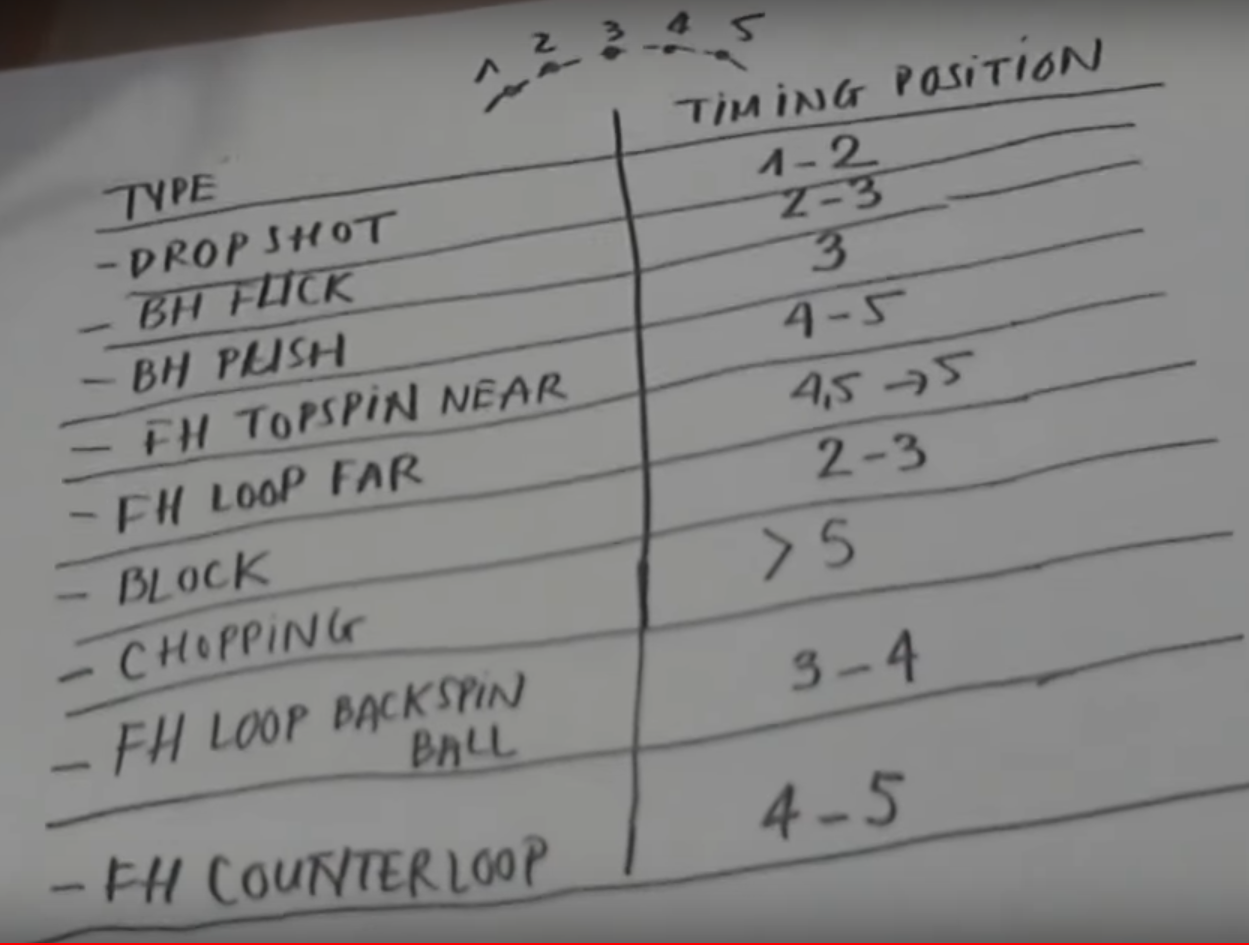 1 2 3 4 5
TYPE TIMING POSITION
- DROPSHOT 1-2
- BH FLICK 2-3
- BH PUSH 3
- FH TOPSPIN NEAR 4-5
- FH LOOP FAR 4,5 → 5
- BLOCK 2-3
- CHOPPING > 5
- FH LOOP BACKSPIN 3-4
BALL
- FH COUNTERLOOP 4-5